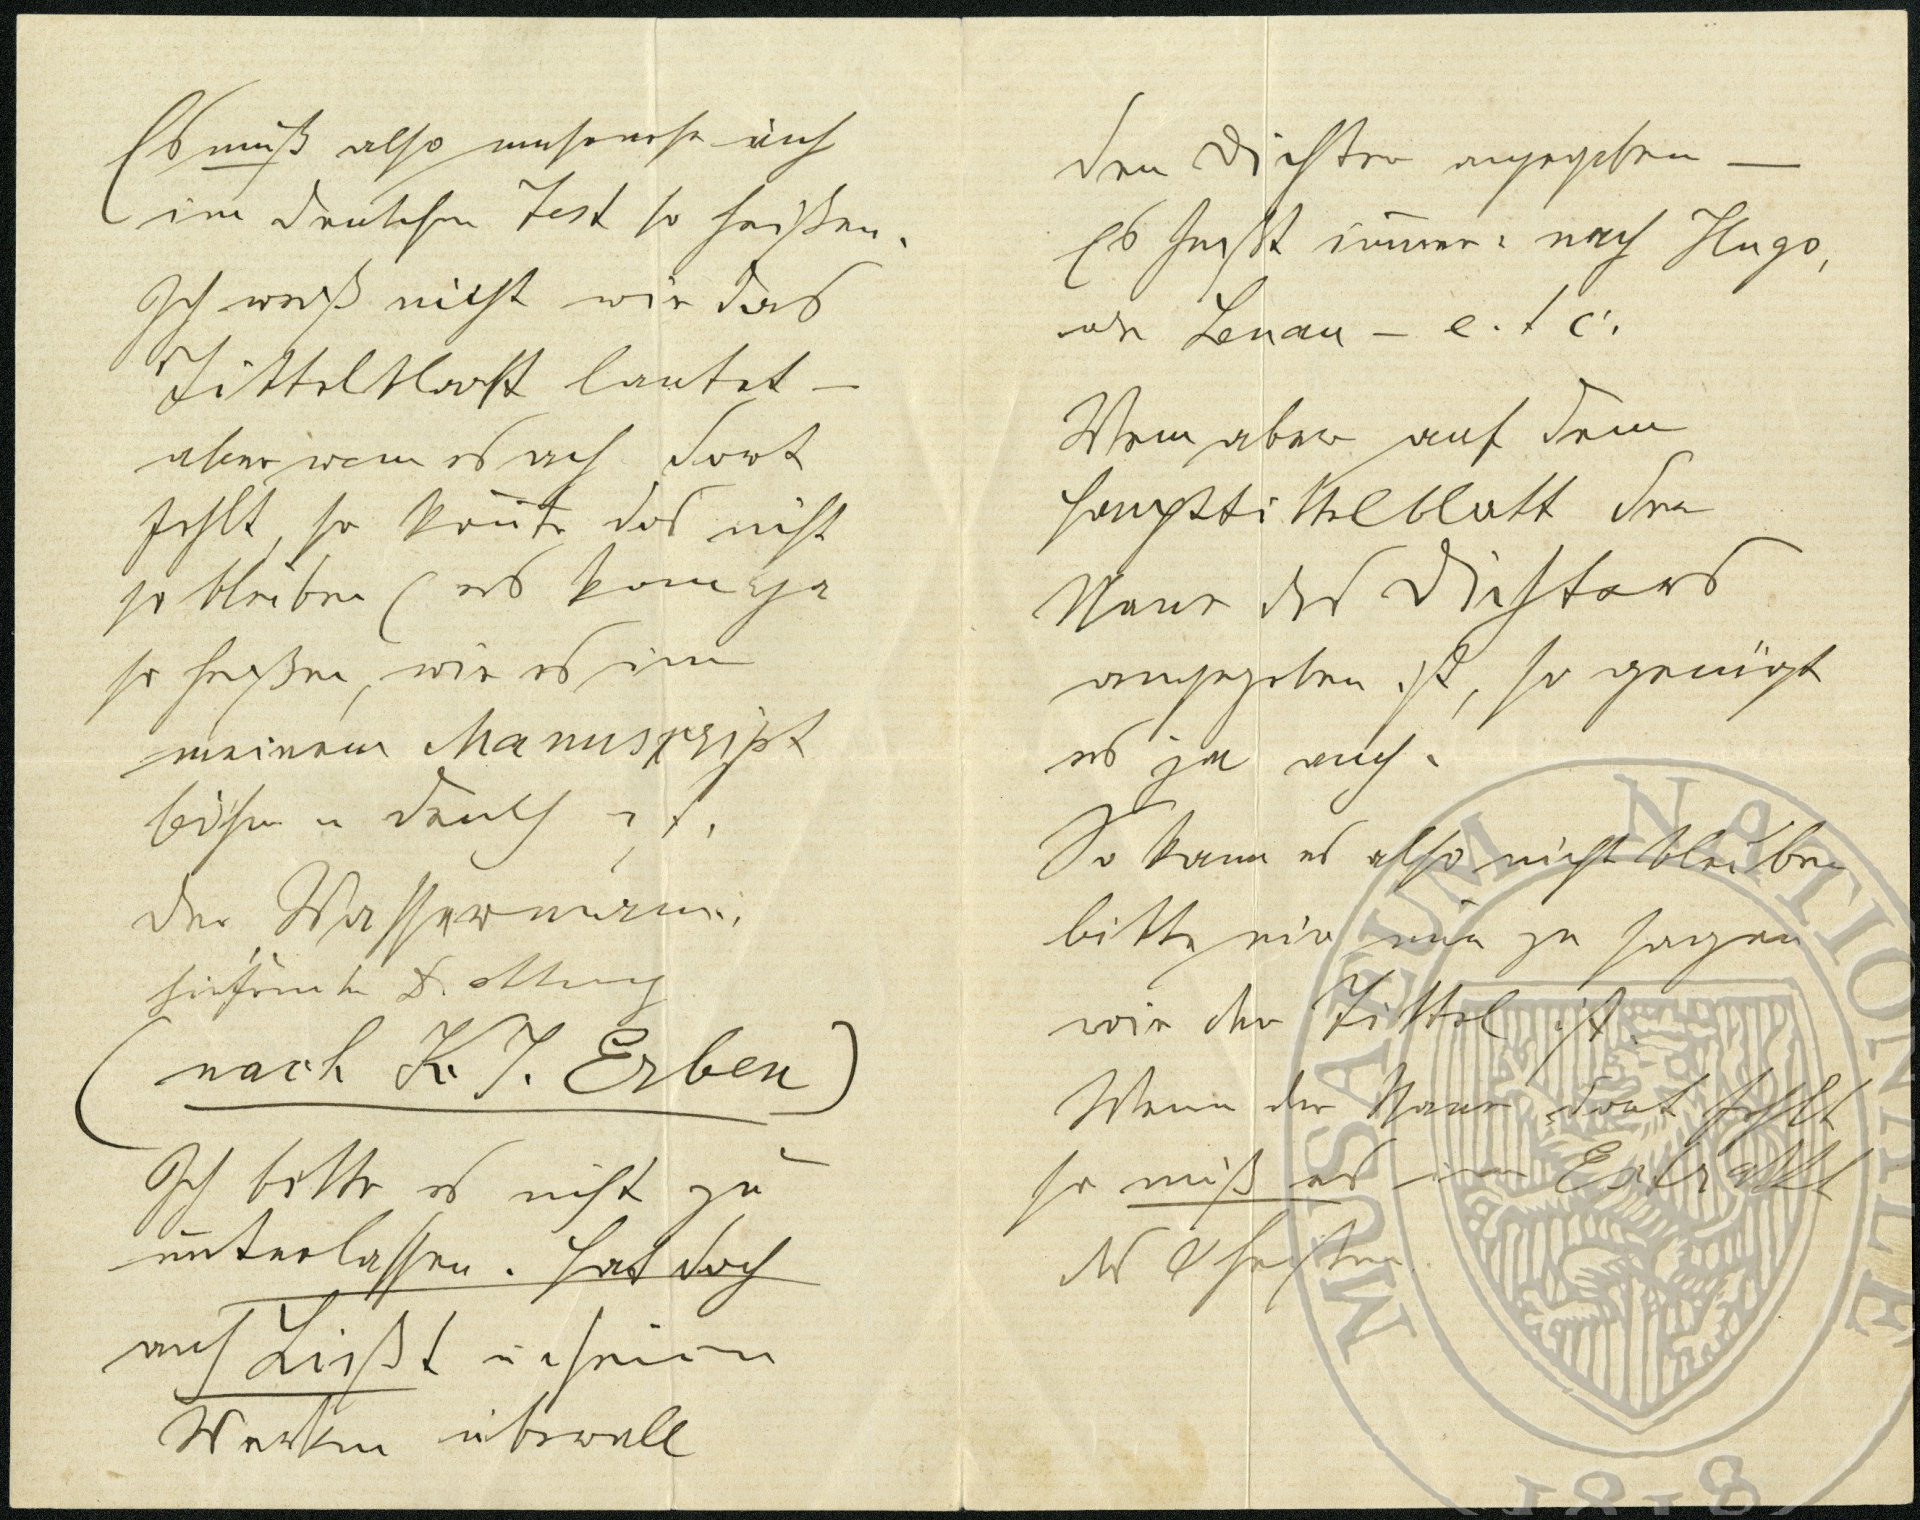 Es muß also auch
im deutschen Text so heißen.
Ich weiß nicht wie das
Tittelblatt lautet —
aber wenn es auch dort
fehlt, so könnte das nicht
so bleiben (es kann ja
so heißen, wie es im
meinem Manuskript
böhm u deutsch ist.
der Wassermann.
sinfonische Dichtung
(nach K. J. Erben)
Ich bitte es nicht zu
unterlassen. Hat doch
auch Lißt in seinen
Werken überall
den Dichter angegeben —
Es heißt immer: nach Hugo,
oder Lenau — e. t c.
Wenn aber auf dem
Haupttittelblatt der
Name des Dichters
angegeben ist, so genügt
es ja auch.
So kann es also nicht bleiben
bitte mir nun zu sagen
wie der Tittel ist.
Wenn der Name dort fehlt
so muß es im
des
MUSAEUM NATIONALE
1818